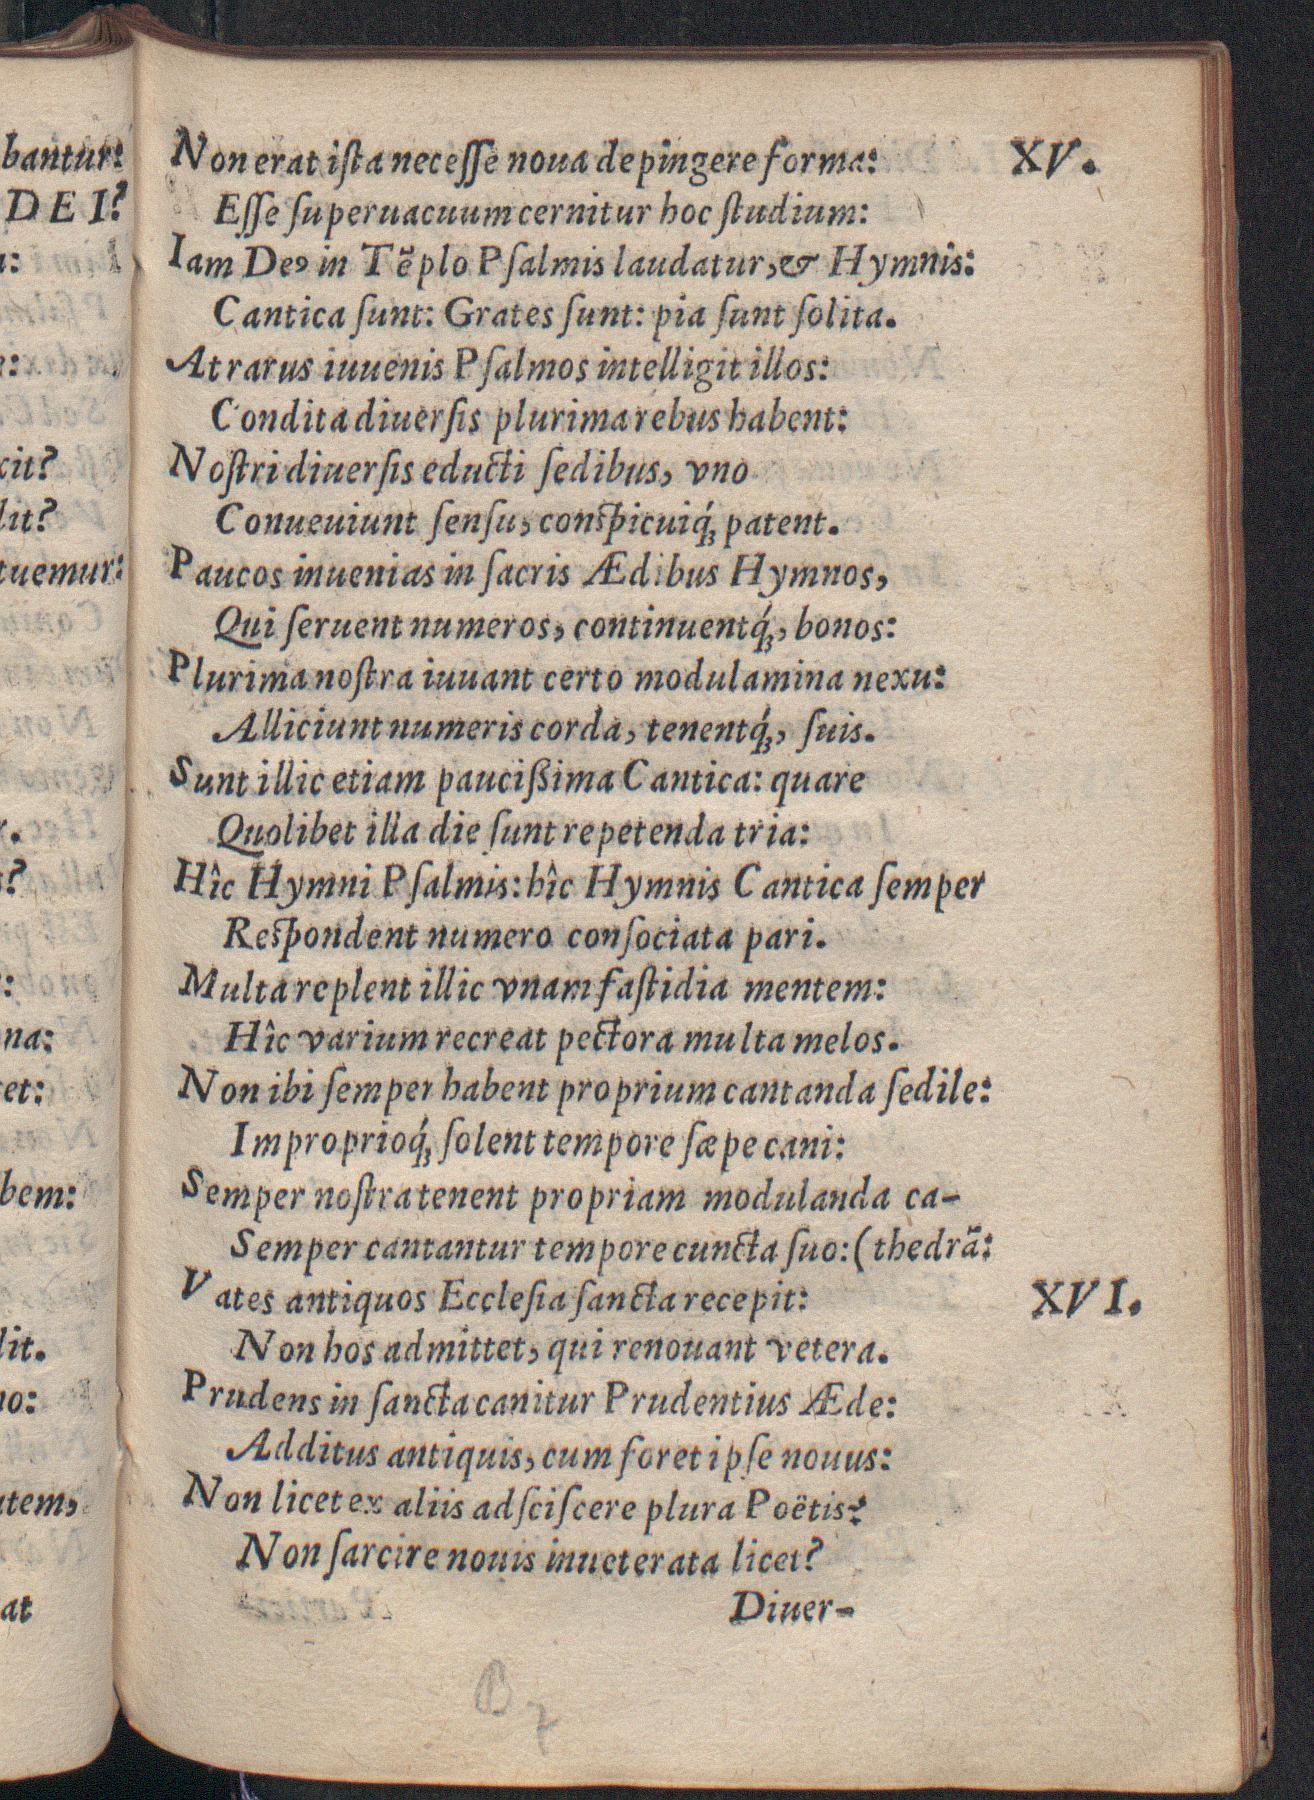 bantur:
DEI?
a:
e:
xit?
lit?
tuemur:
r.
s?
:
na:
et:
bem:
lit.
no:
utem,
at
Non erat iſta neceſſe noua depingere forma: XV.
Eſſe ſuperuacuum cernitur hoc ſtudium:
Iam Deꝰ in Tẽplo Pſalmis laudatur, & Hymnis:
Cantica ſunt: Grates ſunt: pia ſunt ſolita.
At rarus iuuenis Pſalmos intelligit illos:
Condita diuerſis plurima rebus habent:
Noſtri diuerſis educti ſedibus, vno
Conueuiunt ſenſu, conſpicuiq́; patent.
Paucos inuenias in ſacris Ædibus Hymnos,
Qui ſeruent numeros, continuentq́;, bonos:
Plurima noſtra iuuant certo modulamina nexu:
Alliciunt numeris corda, tenentq́;, ſuis.
Sunt illic etiam pauciſſima Cantica: quare
Quolibet illa die ſunt repetenda tria:
Hîc Hymni Pſalmis: hîc Hymnis Cantica ſemper
Reſpondent numero conſociata pari.
Multa replent illic vnam faſtidia mentem:
Hîc varium recreat pectora multa melos.
Non ibi ſemper habent proprium cantanda ſedile:
Improprioq́; ſolent tempore ſæpe cani:
Semper noſtra tenent propriam modulanda ca-
Semper cantantur tempore cuncta ſuo: (thedrã:
Vates antiquos Eccleſia ſancta recepit: XVI.
Non hos admittet, qui renouant vetera.
Prudens in ſancta canitur Prudentius Æde:
Additus antiquis, cum foret ipſe nouus:
Non licet ex aliis adſciſcere plura Poëtis?
Non ſarcire nouis inueterata licet?
Diuer-
B 7